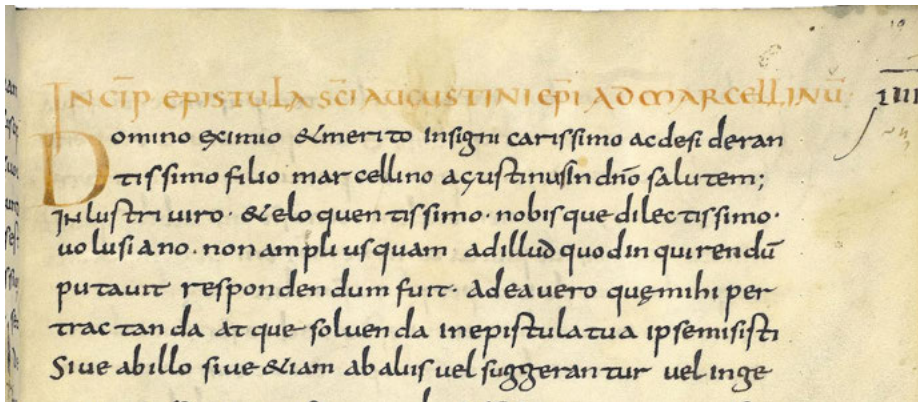 INCIP̄ EPISTULA SC̄I AUGUSTINI EP̄I AD MARCELLINŪ
IIII
Domino eximio & merito insigni carissimo ac desideran
tissimo filio marcellino agustinus In dn̄o salutem;
Inlustri uiro · & eloquentissimo · nobisque dilectissimo ·
uolusiano · non amplius quam ad illud quod inquirendū
putauit respondendum fuit · ad ea uero quę mihi per
tractanda atque soluenda in epistula tua ipse misisti
Siue ab illo siue &iam ab aliis uel suggerantur uel inge